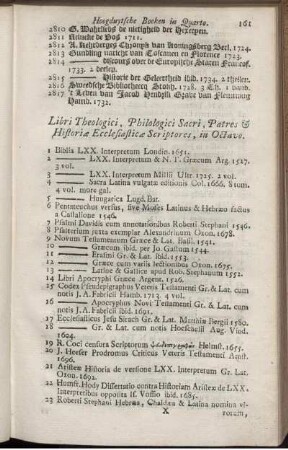 Hoogduytsche Boeken in Quarto. 161
2810 G. Wahrliebs de nichtigheit der Hexereyen.
2811 Reineke de Vos 1711.
2812 A. Rehebergs Chronyk van Koningsberg Berl. 1724.
2813 Gundling nachricht van Toscanen en Florence 1723.
2814 ——— discours over de Europische Staten Francof.
1733. 2 deelen.
2815 ——— Historie der Gelertheid ibid. 1734. 2 theilen.
2816 Sweedsche Bibliotheken Stokh. 1728. 3 Th. 1 band.
2817 't Leven van Jacob Hendrik Grave van Flemming
Hamb. 1732.
Libri Theologici, Philologici Sacri, Patres &
Historiæ Ecclesiasticæ Scriptores, in Octavo.
1 Biblia LXX. Interpretum Londin. 1653.
2 ——— LXX. Interpretum & N. T. Græcum Arg. 1527.
3 vol.
3 ——— LXX. Interpretum Millii Ultr. 1725. 2 vol.
4 ——— Sacra Latina vulgatæ editionis Col. 1666. 8 tom.
4 vol. mor. gal.
5 ——— Hungarica Lugd. Bat.
6 Pentateuchus versus, sive Moses Latinus & Hebræo factus
a Castalione 1546.
7 Psalmi Davidis cum annotationibus Roberti Stephani 1546.
8 Psalterium juxta exemplar Alexandrinum Oxon. 1678.
9 Novum Testamentum Græce & Lat. Basil. 1541.
10 ——— Græcum ibid. per Jo. Gastium 1544.
11 ——— Erasmi Gr. & Lat. ibid. 1553.
12 ——— Græce cum variis lectionibus Oxon. 1675.
13 ——— Latine & Gallice apud Rob. Stephanum 1552.
14 Libri Apocryphi Græce Argent. 1526.
15 Codex Pseudepigraphus Veteris Testamenti Gr. & Lat. cum
notis J. A. Fabricii Hamb. 1713. 4 vol.
16 ——— Apocryphus Novi Testamenti Gr. & Lat. cum
notis J. A. Fabricii ibid. 1691.
17 Ecclesiasticus Jesu Sirach Gr. & Lat. Matthiæ Bergii 1580.
18 ——— Gr. & Lat. cum notis Hoeschelii Aug. Vind.
1604.
19 R. Coci censura Scriptorum Helmst. 1655.
20 J. Heeser Prodromus Criticus Veteris Testamenti Amst.
1696.
21 Aristeæ Historia de versione LXX. Interpretum Gr. Lat.
Oxon. 1692.
22 Humfr. Hody Dissertatio contra Historiam Aristeæ de LXX.
Interpretibus opposita If. Vossio ibid. 1685.
23 Roberti Stephani Hebræa, Chaldæa & Latina nomina vi-
X rorum,